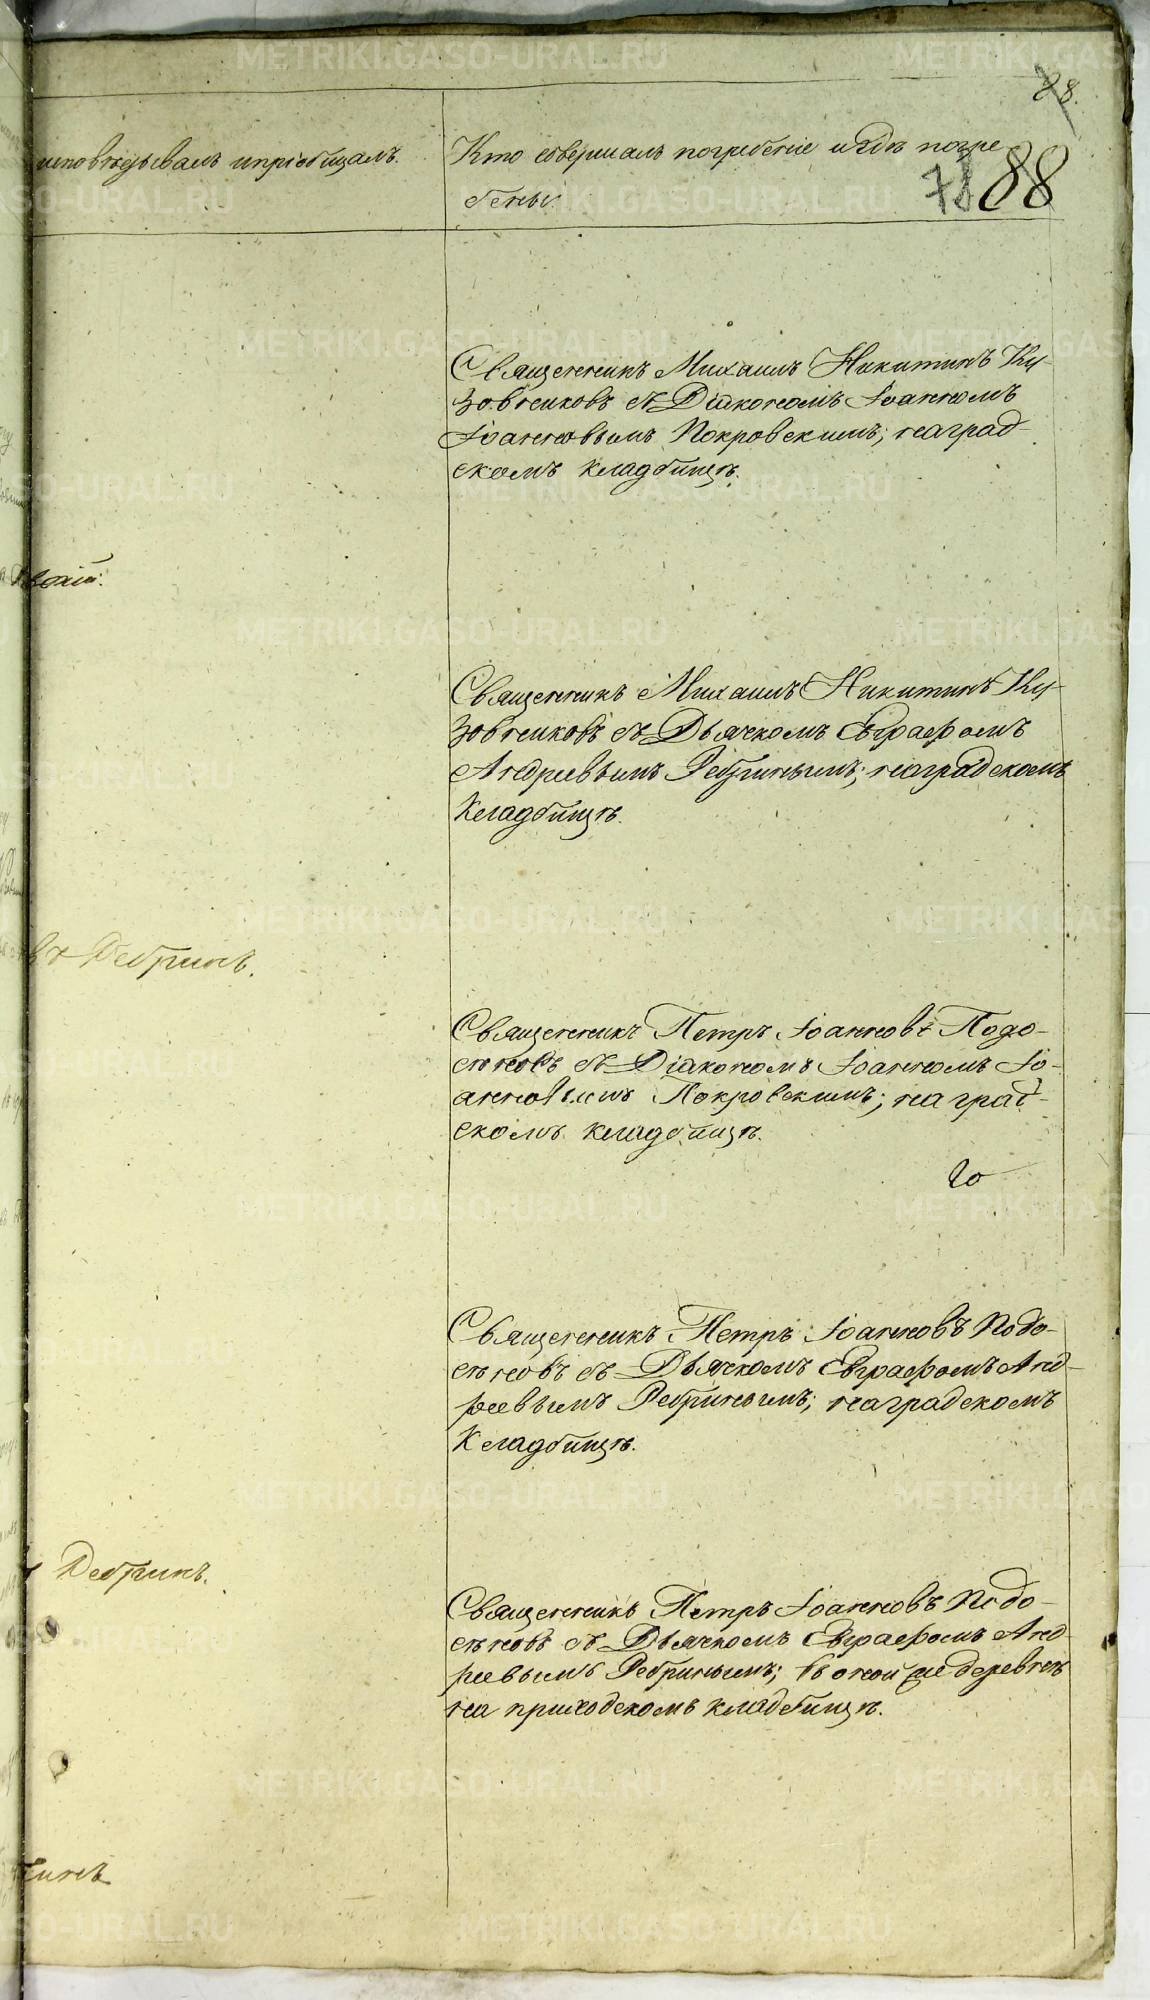 88.
исповѣдывалъ и пріобщалъ.
Кто совершалъ погребеніе и гдѣ погре
бены.
78 88
Священникъ Михаилъ Никитинъ Ку-
зовниковъ съ Діакономъ Іоанномъ
Іоанновымъ Покровскимъ; на град
скомъ кладбищѣ.
Священникъ Михаилъ Никитинъ Ку-
зовниковъ съ Дьячкомъ Евграфомъ
Андреевымъ Ребринымъ; на градскомъ
Кладбищѣ.
въ Ребринъ.
Священникъ Петръ Іоанновъ Подо-
сѣновъ съ Діакономъ Іоанномъ Іо-
анновымъ Покровскимъ; на град-
скомъ кладбищѣ.
Священникъ Петръ Іоанновъ Подо-
сѣновъ съ Дьячкомъ Евграфомъ Анд-
реевымъ Ребринымъ; на градскомъ
Кладбищѣ.
Ребринъ.
Священникъ Петръ Іоанновъ Подо-
сѣновъ съ Дьячкомъ Евграфомъ Анд-
реевымъ Ребринымъ; въ оной же деревнѣ
на приходскомъ кладбищѣ.
METRIKI.GASO-URAL.RU